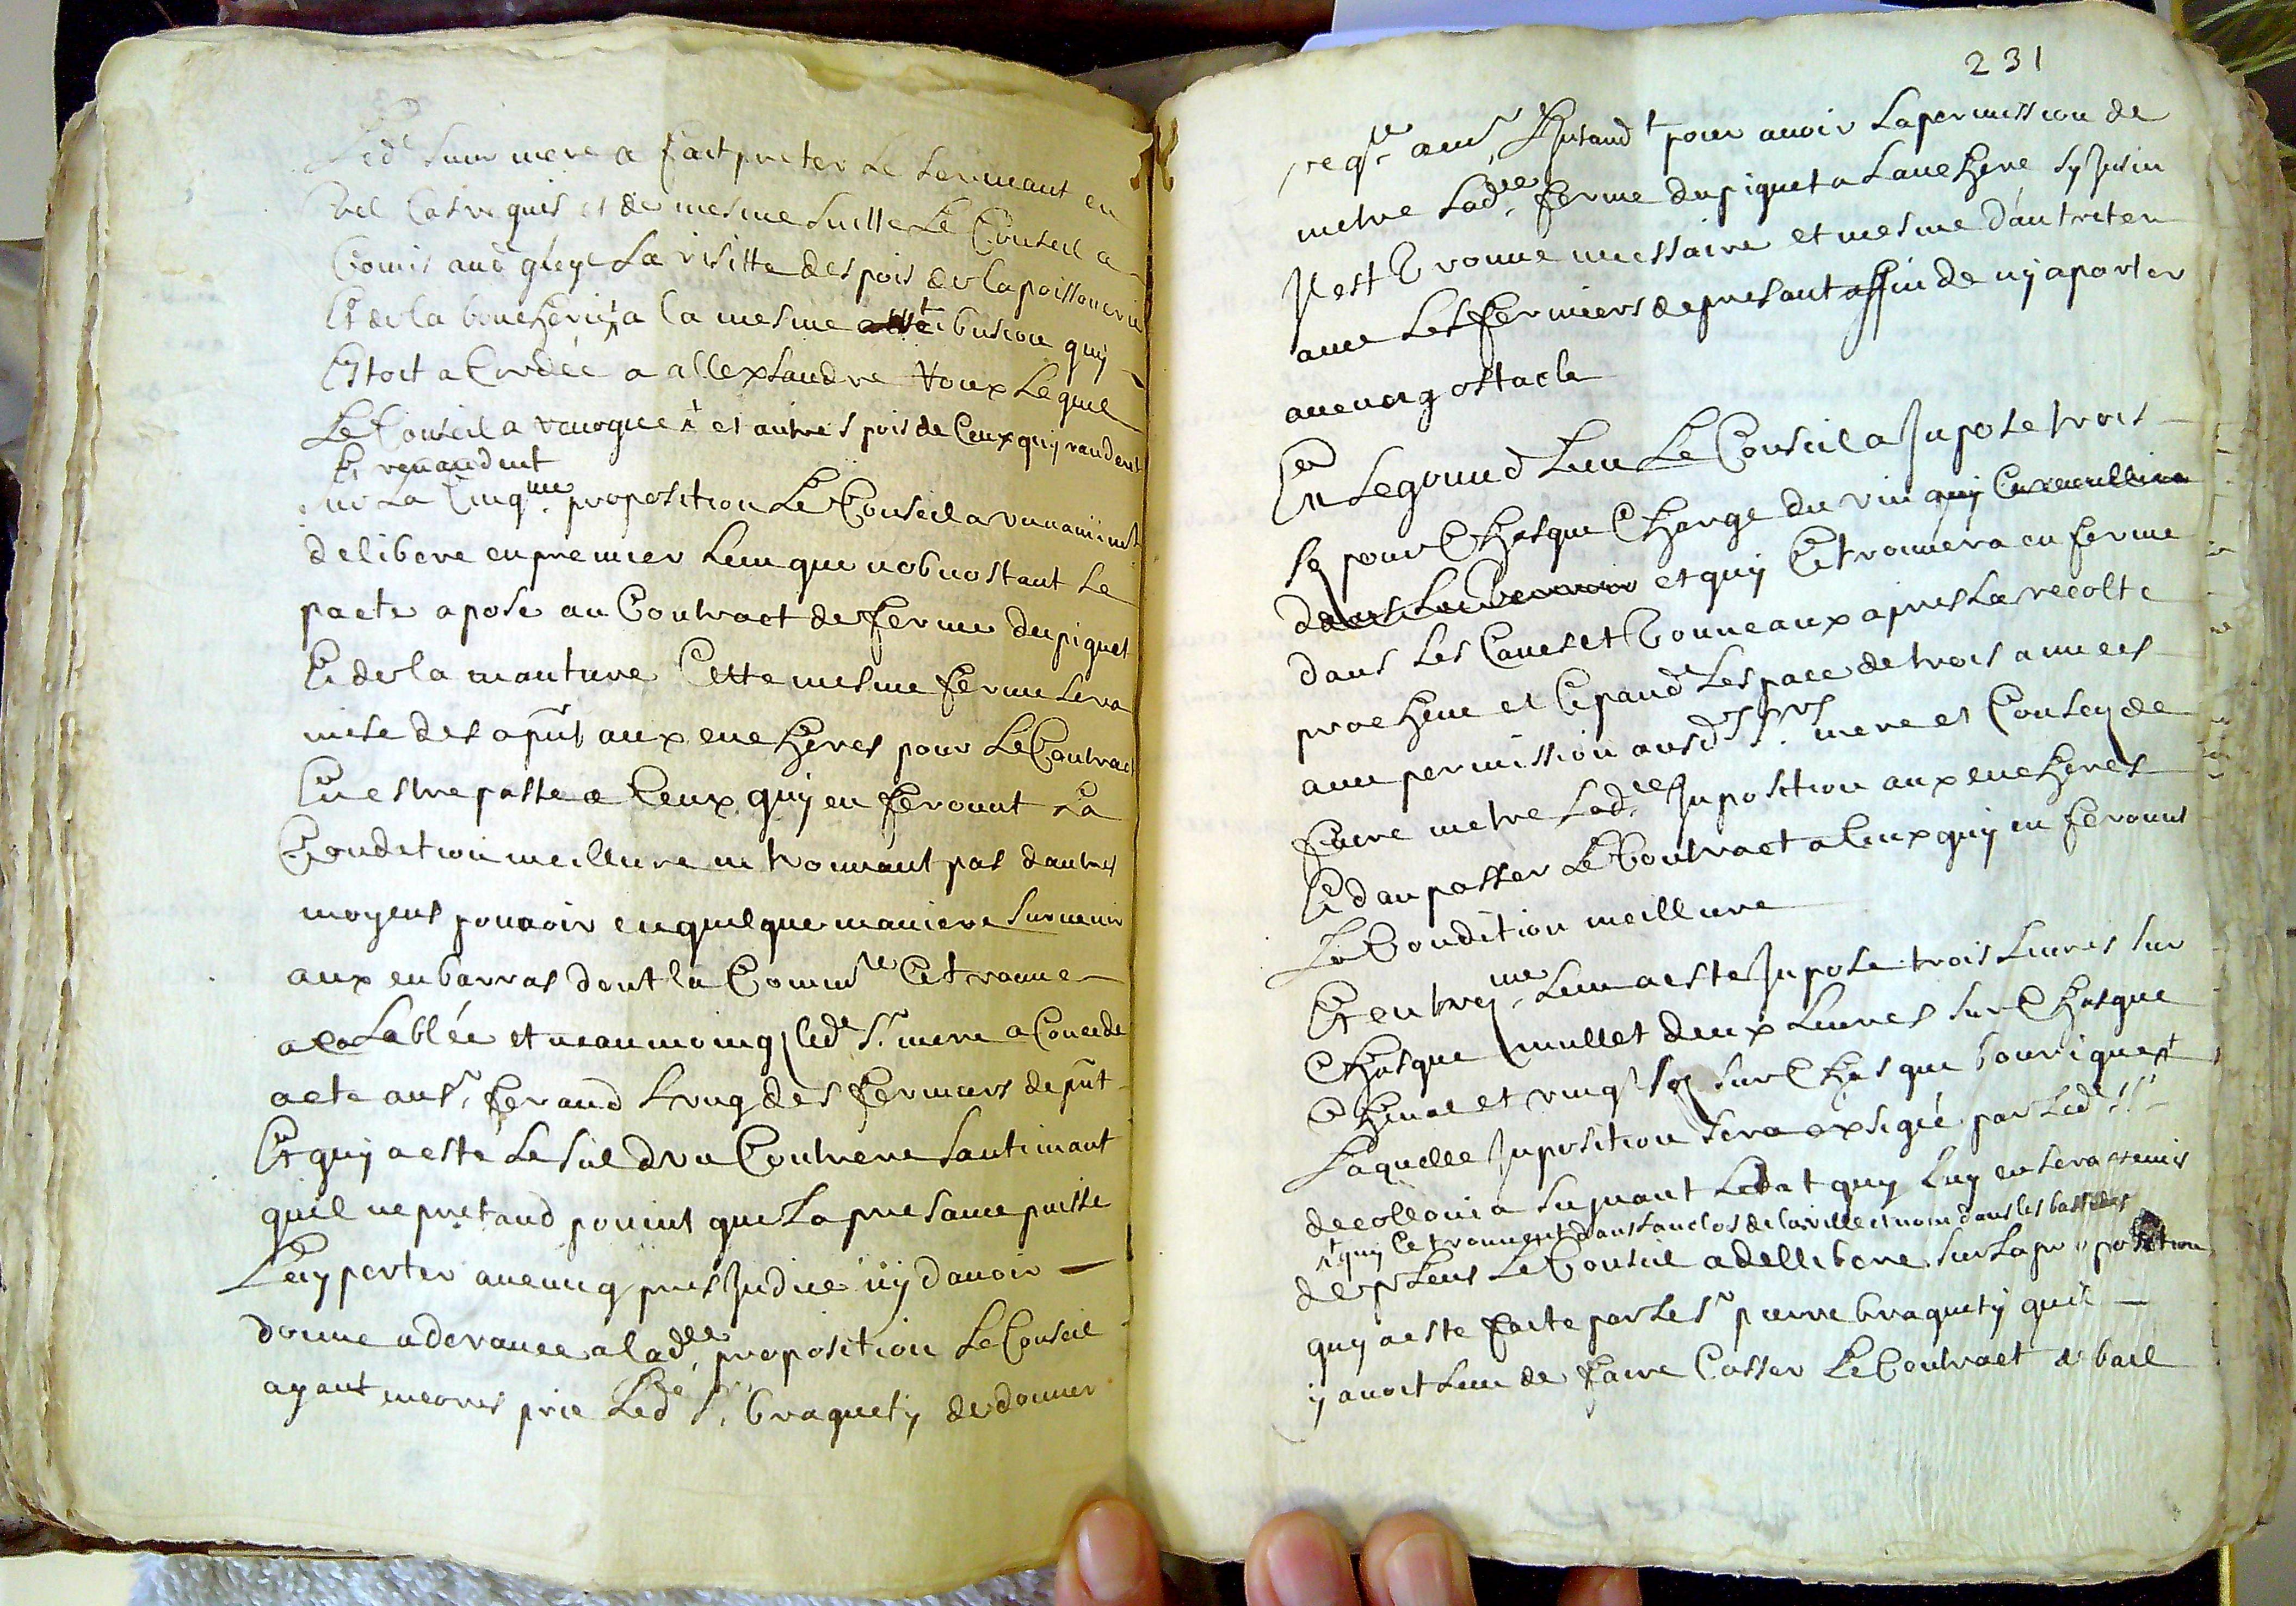 Led.e sieur mere a fait preter le sermant en
tel cas requis et de mesme suitte le Conseil a
Comis aud gleye La visitte des pois de la poissonerie
Et de la boucherie, a la mesme atribution quy
Estoit acordée a allexsandre Voux Lequel
Le Conseil a revoqué et autres pois de Ceux quy vandent
Et revandent
sur La Cinq.me proposition Le Conseil a unanimmt
delibere en premier lieu que nobnostant Le
pacte apose au Contract de ferme du piquet
Et de la mouture Cette mesme ferme sera
mise des apnt aux encheres pour Le Contract
En estre passe a Ceux quy en feront La
Condition meilleure ne trouvant pas dautres
moyens pouvoir en quelque maniere survenir
aux enbarras dont la Comm.te Ce trouve
acablée et neanmoing led.e S.r mere a Concede
acte au S.r feraud L'ung des fermiers de pnt
Et quy a esté Le sul d'un Contrere santimant
quil ne pretand point que La presance puisse
Luy porter aucung presjudice ny d'avoir
donne aderance a lad.te proposition Le Conseil
ayant encores prie Led.e S.r braquety de donner
231
req.te a mr L'Intand.t pour avoir La permission de
metre Lad.te ferme du piquet a L'anchere sy Insin
Il est trouve nuessaire et mesme d'autreter
avec Les fermiers de presant affin de ny aporter
aucung ostacle
En Segound Lieu Le Conseil a Inpose trois
sos pour Chasque Charge du vin quy
et quy Ce trouvera en ferme
dans Les Caves et tonneaux apres La recolte
procheine et Ce pand.t L'espace de trois annees
avec permission ausd.s S.rs mere et Consey de
faire metre Lad.te Inposition aux encheres
Et d'an passer Le Contract a Ceux quy en feront
La Condition meilleure
Et en trei.me Lieu a este Inpose trois Livres sur
Chasque mullet deux Livres sur Chasque
Cheval et vingt sos sur Chasque bourique
Laquelle Inposition sera exsigée par Led.t S.r
decollonia suivant Led.at quy luy en sera remis
quy Ce trouvent dans l'anclos de la ville et nom dans les bastides
de plus Le Conseil a dellibere sur La proposition
quy a este faite par Le S.r pierre braquety quil
y avoit Lieu de faire Casser Le Contract de bail